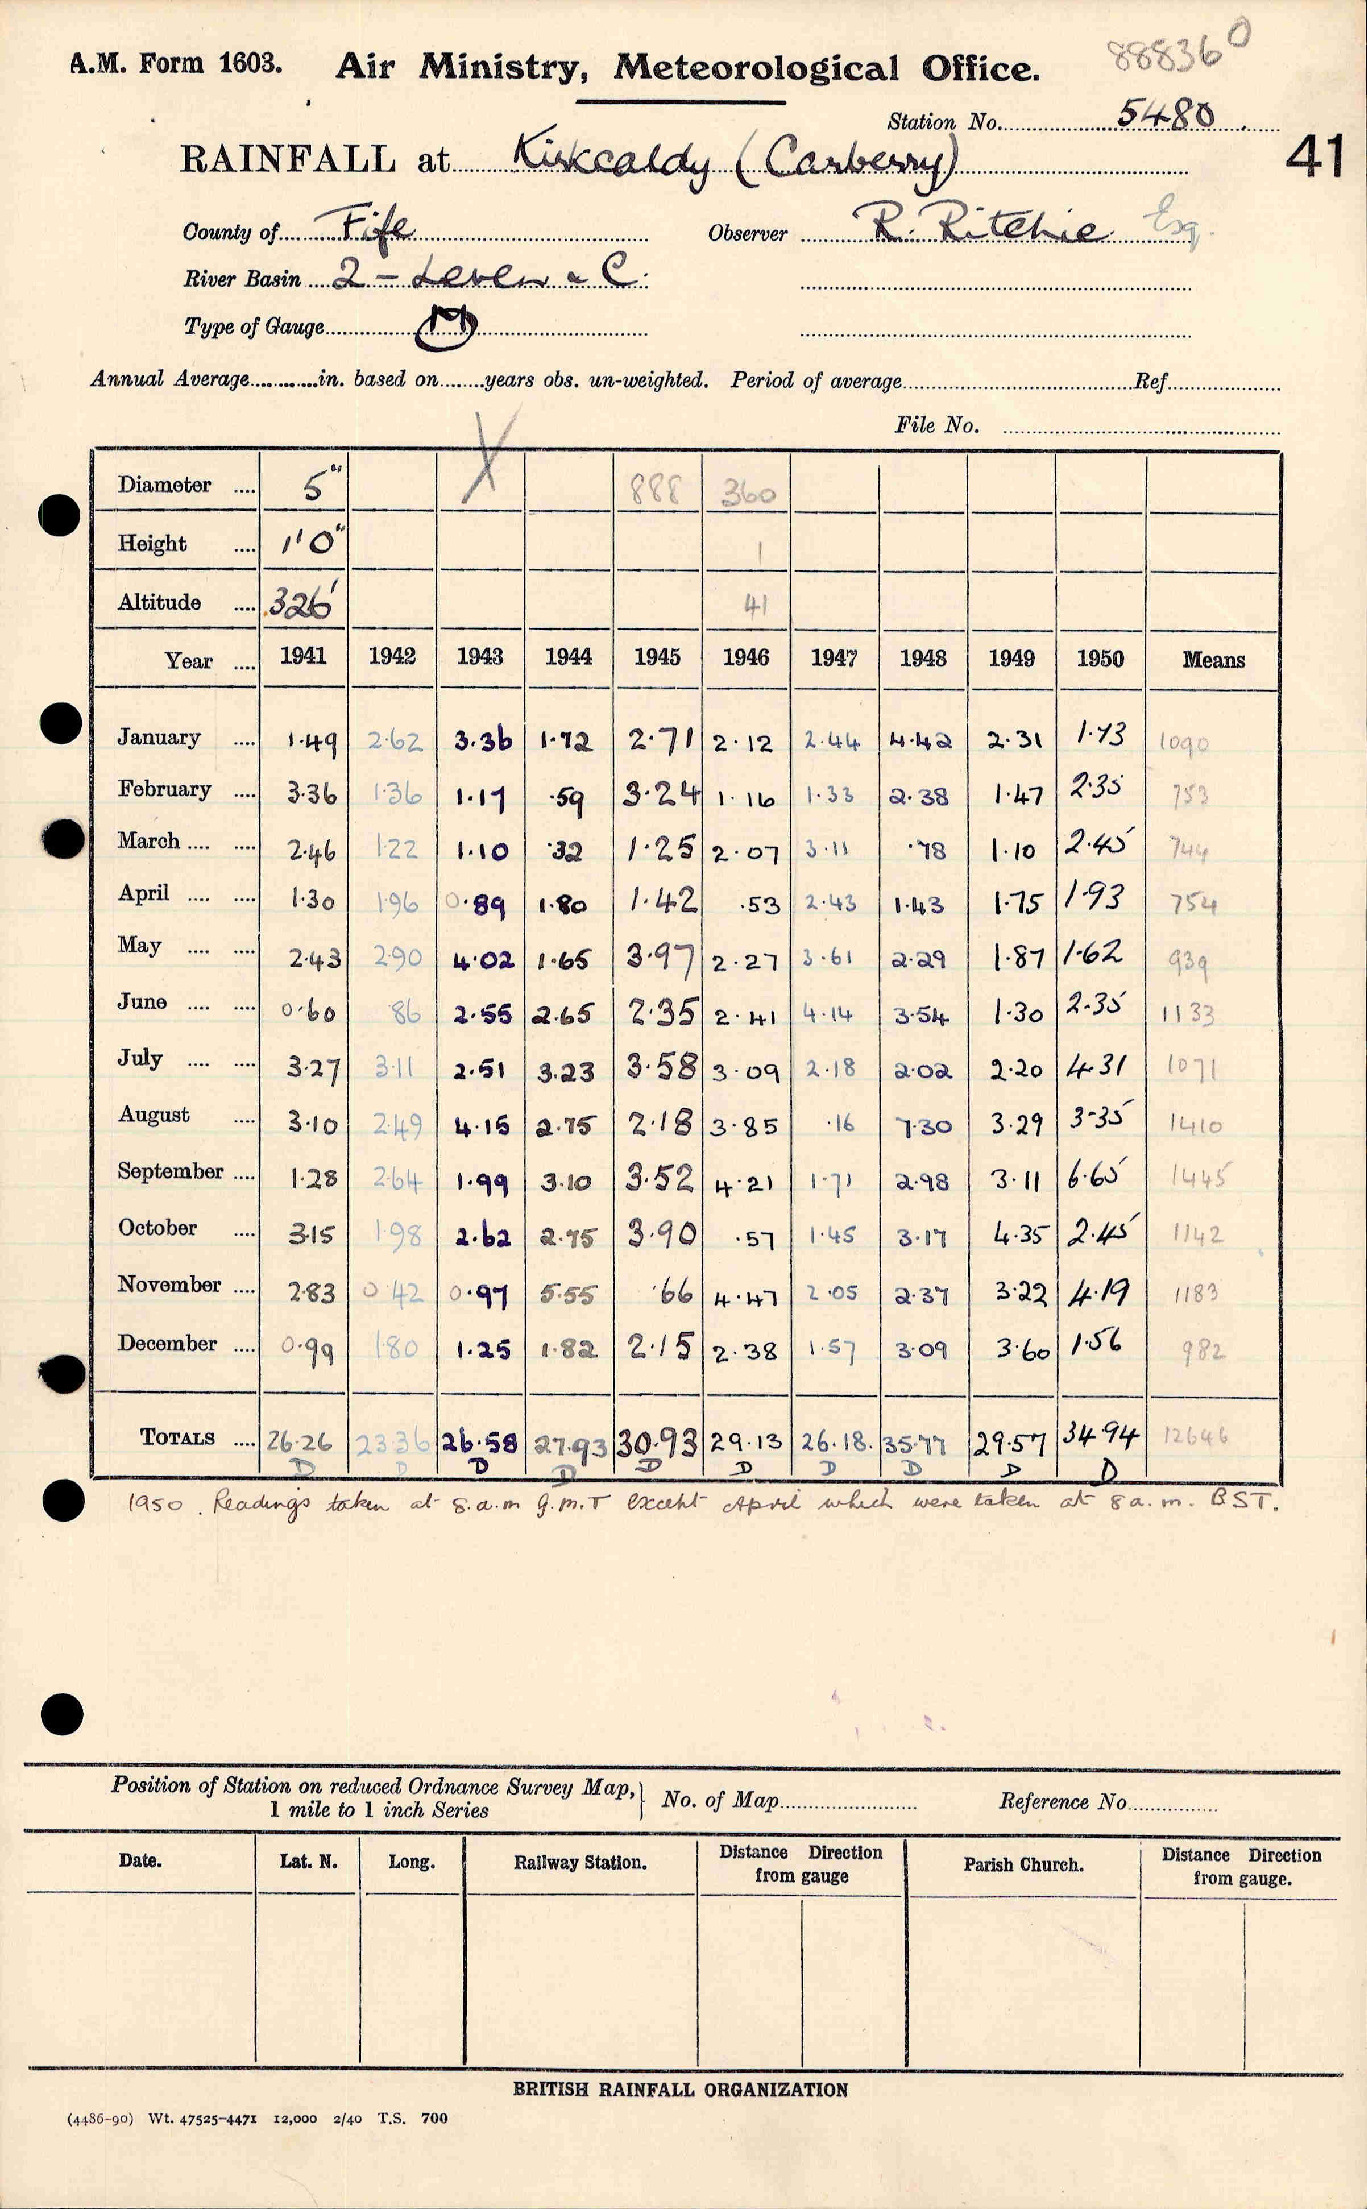 A.M. Form 1603. Air Ministry, Meteorological Office. 888360
Station No. 5480
41
RAINFALL at Kirkcaldy (Carberry)
County of Fife Observer R. Ritchie Esq.
River Basin 2 - Leven & C.
Type of Gauge M
Annual Average in. based on years obs. un-weighted. Period of average Ref.
File No.
Diameter .... 5" X 888 360
Height .... 1'0" 1
Altitude .... 326' 41
Year .... 1941 1942 1943 1944 1945 1946 1947 1948 1949 1950 Means
January .... 1.49 2.62 3.36 1.72 2.71 2.12 2.44 4.42 2.31 1.73 1090
February .... 3.36 1.36 1.17 .59 3.24 1.16 1.33 2.38 1.47 2.35 753
March .... .... 2.46 1.22 1.10 .32 1.25 2.07 3.11 .78 1.10 2.45 744
April .... .... 1.30 1.96 0.89 1.80 1.42 .53 2.43 1.43 1.75 1.93 754
May .... .... 2.43 2.90 4.02 1.65 3.97 2.27 3.61 2.29 1.87 1.62 939
June .... .... 0.60 .86 2.55 2.65 2.35 2.41 4.14 3.54 1.30 2.35 1133
July .... .... 3.27 3.11 2.51 3.23 3.58 3.09 2.18 2.02 2.20 4.31 1071
August .... 3.10 2.49 4.15 2.75 2.18 3.85 .16 7.30 3.29 3.35 1410
September .... 1.28 2.64 1.99 3.10 3.52 4.21 1.71 2.98 3.11 6.65 1445
October .... 3.15 1.98 2.62 2.75 3.90 .57 1.45 3.17 4.35 2.45 1142
November .... 2.83 0.42 0.97 5.55 .66 4.47 2.05 2.37 3.22 4.19 1183
December .... 0.99 1.80 1.25 1.82 2.15 2.38 1.57 3.09 3.60 1.56 982
TOTALS .... 26.26 23.36 26.58 27.93 30.93 29.13 26.18. 35.77 29.57 34.94 12646
D D D D D D D D D D
1950 Readings taken at 8.a.m G.M.T except April which were taken at 8 a.m. BST.
Position of Station on reduced Ordnance Survey Map, 1 mile to 1 inch Series } No. of Map Reference No
Date. Lat. N. Long. Railway Station. Distance Direction from gauge Parish Church. Distance Direction from gauge.
BRITISH RAINFALL ORGANIZATION
(4486-90) Wt. 47525-4471 12,000 2/40 T.S. 700